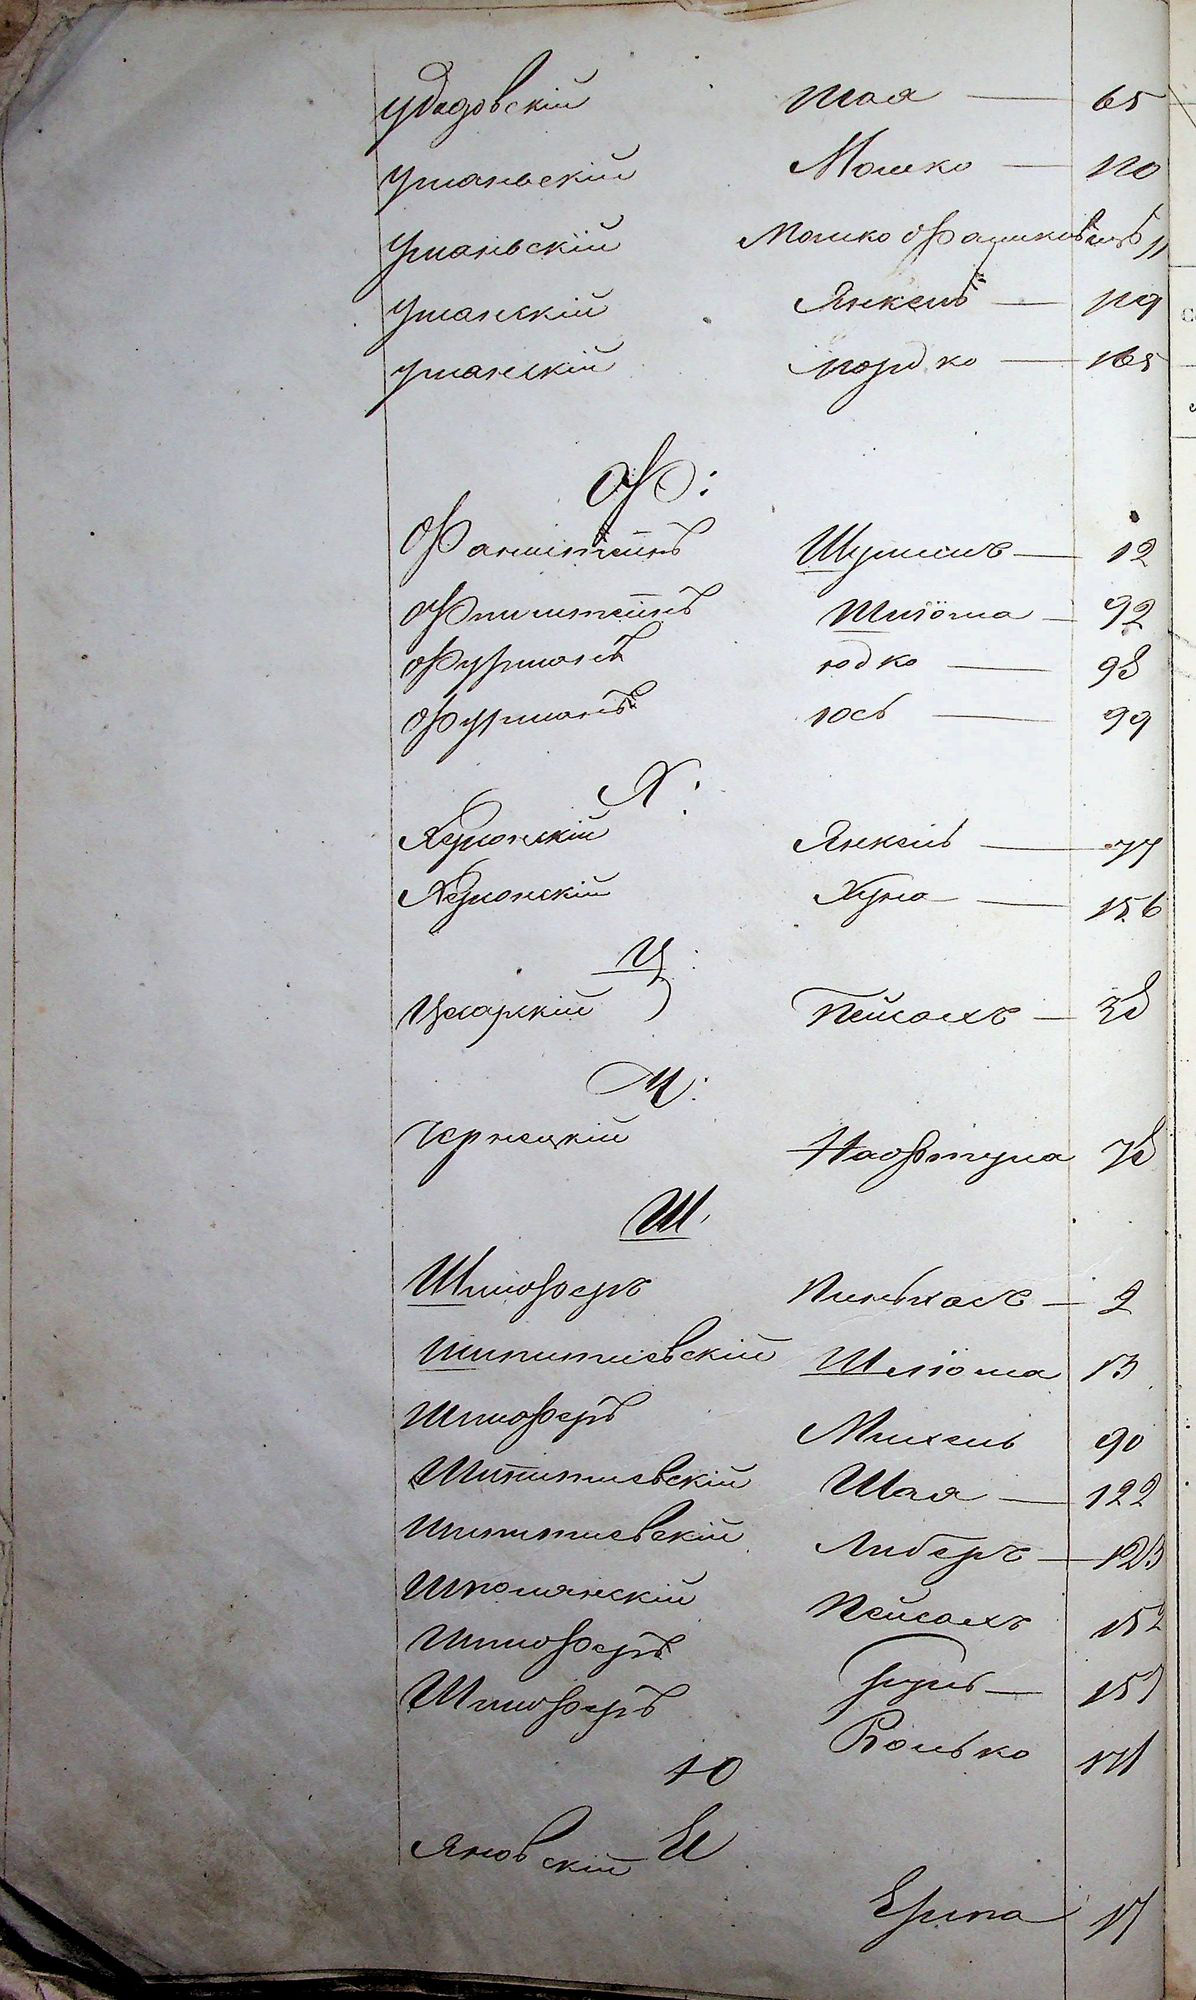 Удодовскій Шая — 65
Уманьскій Мошко — 110
Уманьскій Мошко Фаликовичъ 11
Уманскій Янкель — 119
Уманскій Мордко — 165
Ф:
Фанштейнъ Шулимъ — 12
Финштейнъ Шліома — 92
Фурманъ Юдко — 98
Фурманъ Іось — 99
Х:
Херсонскій Янкель — 77
Херсонскій Хуна — 156
Ц:
Цесарскій Пейсахъ — 38
Ч:
Чернецкій Нафтула 78
Ш.
Шмоферъ Пиньхасъ — 2
Шпитилевскій Шліома 13
Шмоферъ Михель 90
Шпитилевскій Шая — 122
Шпитилевскій Либеръ — 123
Шполянскій Пейсахъ 152
Шмоферъ Сруль — 157
Шмоферъ Волько 171
Ю
Я
Яновскій Ерипа 17